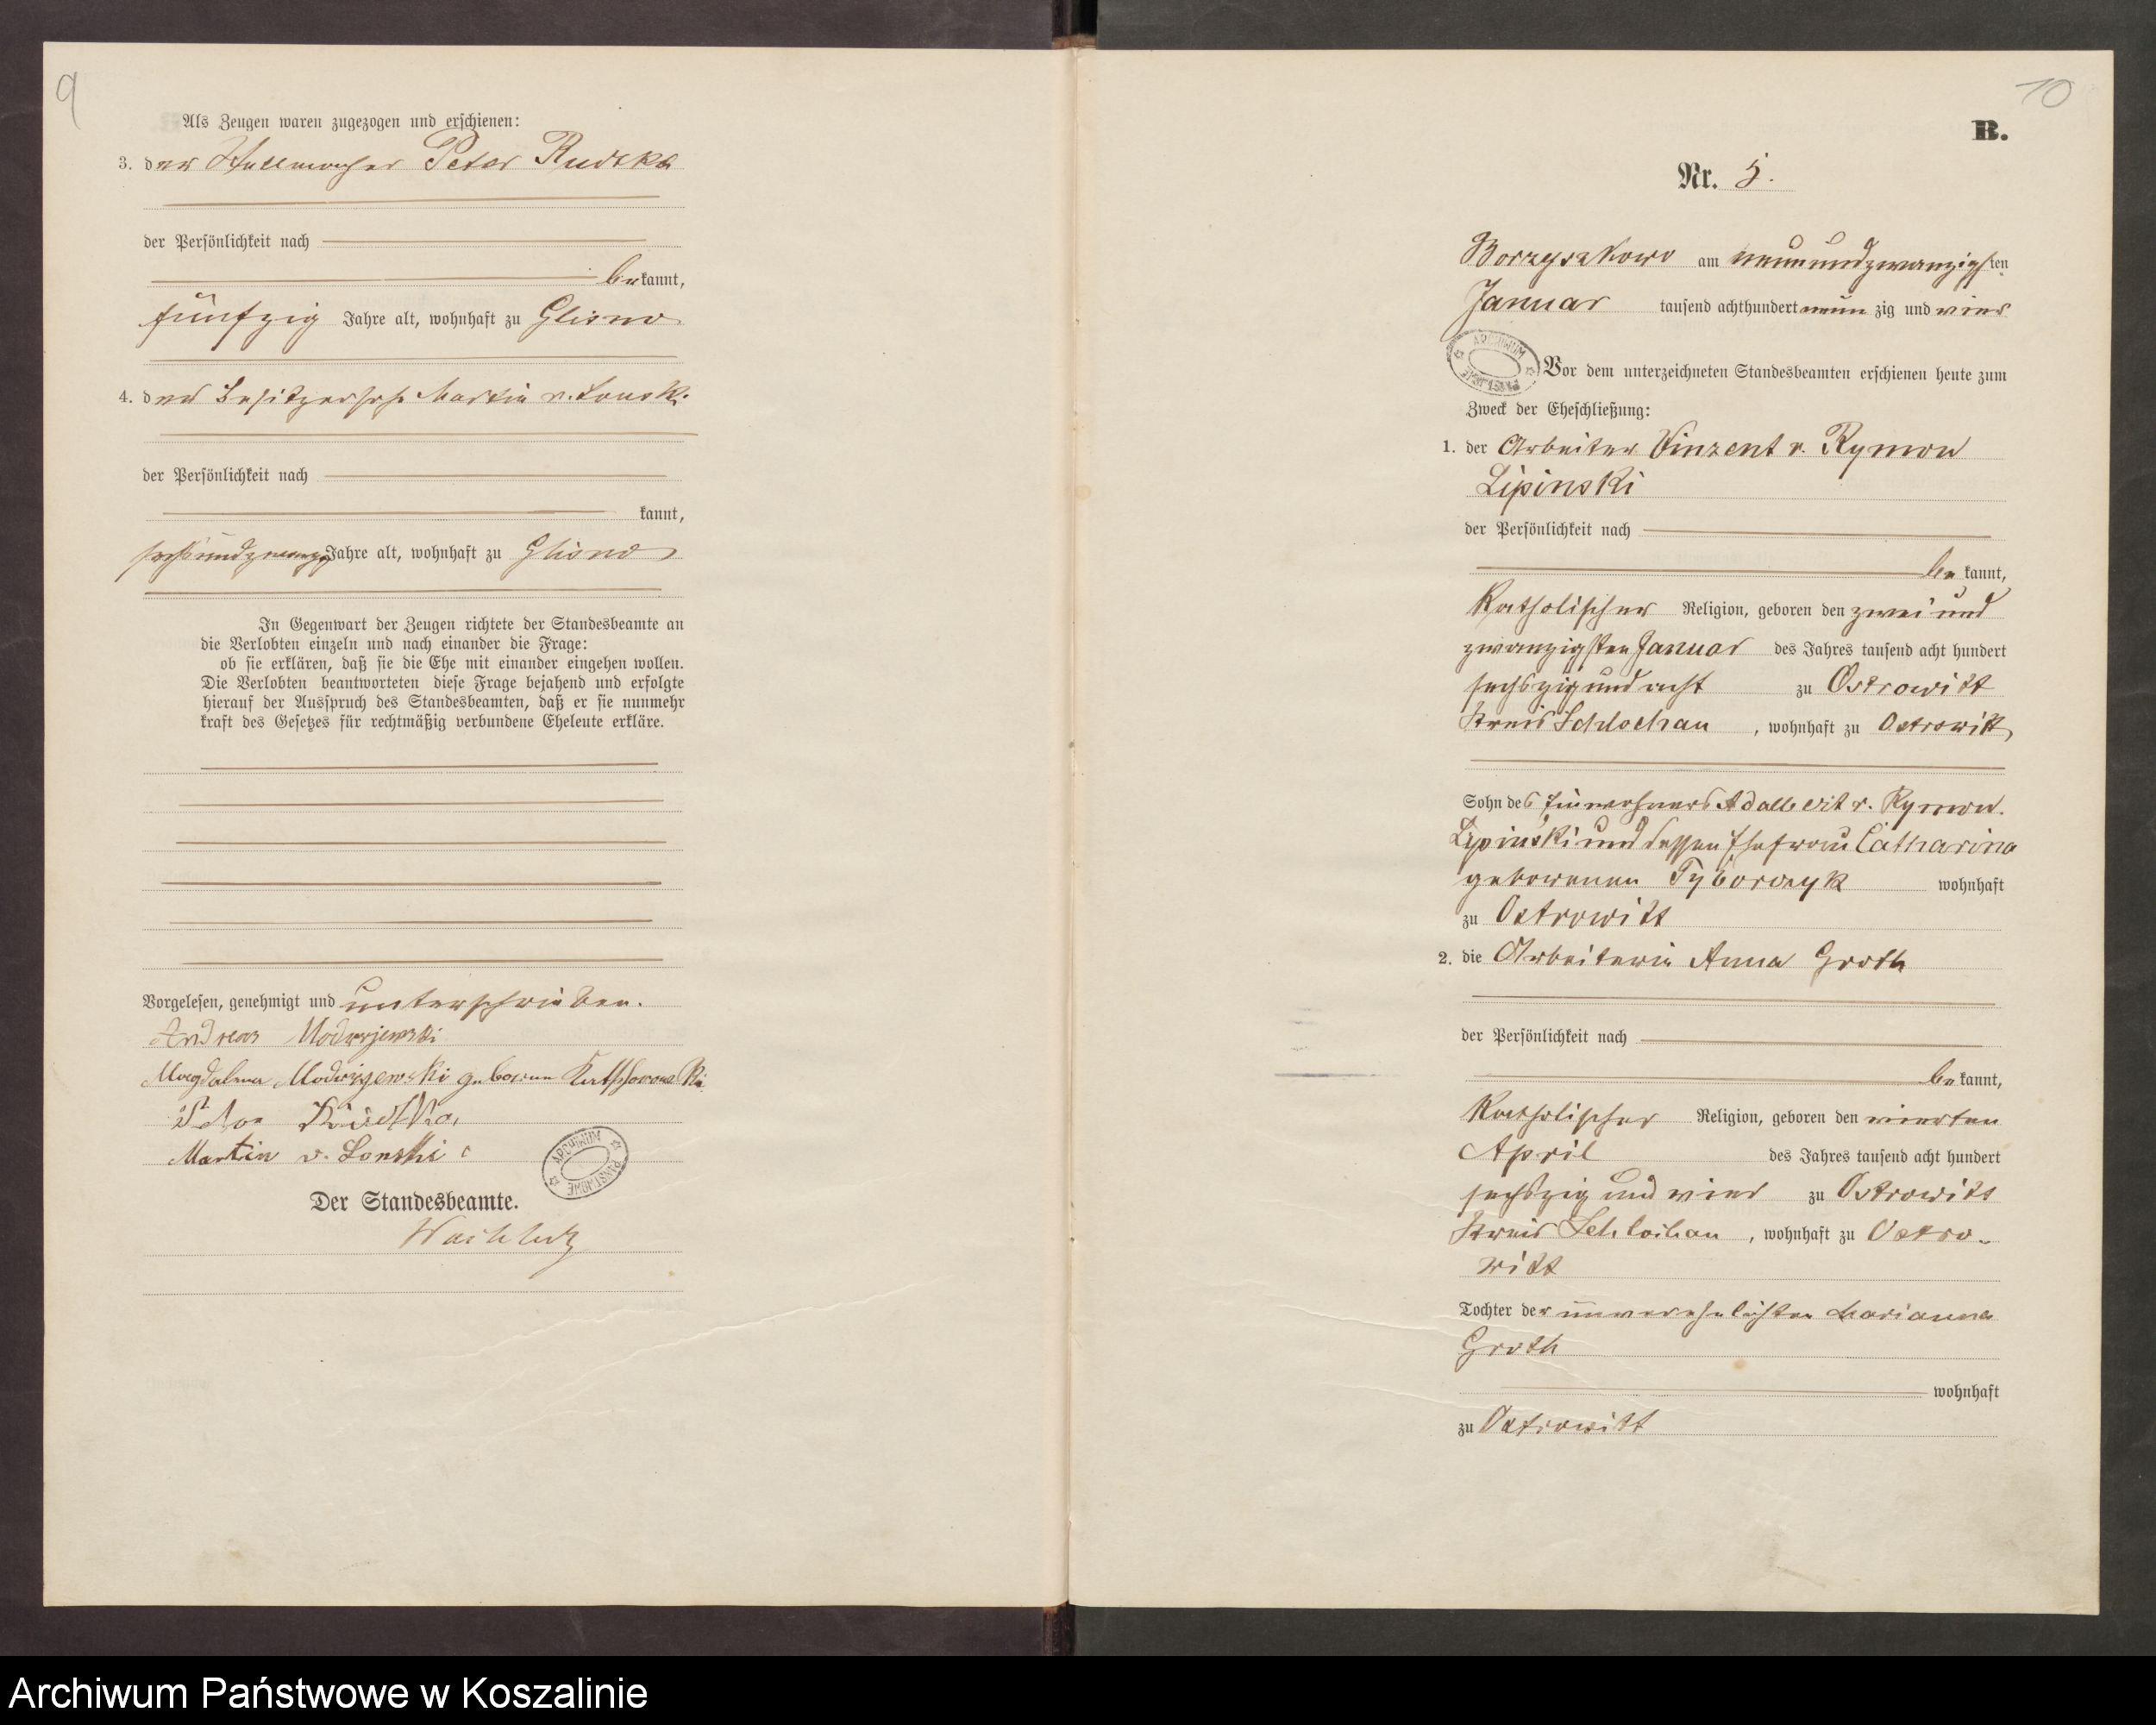 9
Als Zeugen waren zugezogen und erschienen:
3. der Stellmacher Peter Rudtka
der Persönlichkeit nach
bekannt,
fünfzig Jahre alt, wohnhaft zu Glisno
4. der Besitzersohn Martin v. Lonski
der Persönlichkeit nach
kannt,
sechsundzwanzig Jahre alt, wohnhaft zu Glisno
In Gegenwart der Zeugen richtete der Standesbeamte an
die Verlobten einzeln und nach einander die Frage:
ob sie erklären, daß sie die Ehe mit einander eingehen wollen.
Die Verlobten beantworteten diese Frage bejahend und erfolgte
hierauf der Ausspruch des Standesbeamten, daß er sie nunmehr
kraft des Gesetzes für rechtmäßig verbundene Eheleute erkläre.
Vorgelesen, genehmigt und unterschrieben.
Andreas
Magdalena geborene
Peter
Martin v. Lonski
ARCHIWUM PAŃSTWOWE
Der Standesbeamte.
10
B.
Nr. 5.
Borzyszkowo am neunundzwanzigsten
Januar tausend achthundert neunzig und vier
ARCHIWUM PAŃSTWOWE
Vor dem unterzeichneten Standesbeamten erschienen heute zum
Zweck der Eheschließung:
1. der Arbeiter Vinzent v. Rymon
Lipinski
der Persönlichkeit nach
bekannt,
katholischer Religion, geboren den zweiund
zwanzigsten Januar des Jahres tausend acht hundert
sechszig und acht zu Ostrowitt
Kreis Schlochau, wohnhaft zu Ostrowitt,
Sohn des Einwohners Adalbert v. Rymon
Lipinski und dessen Ehefrau Catharina
geborenen Tyborczyk wohnhaft
zu Ostrowitt
2. die Arbeiterin Anna Groth
der Persönlichkeit nach
bekannt,
katholischer Religion, geboren den vierten
April des Jahres tausend acht hundert
sechszig und vier zu Ostrowitt
Kreis Schlochau, wohnhaft zu Ostro-
witt
Tochter der unverehelichten Marianna
Groth
wohnhaft
zu Ostrowitt
Archiwum Państwowe w Koszalinie